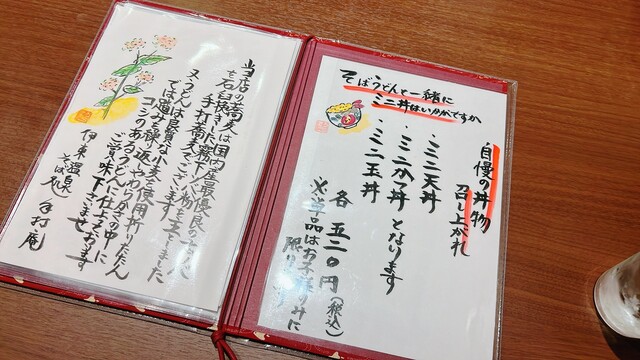 そばうどんと一緒に
ミニ丼はいかがですか
自慢の丼物
召し上がれ
・ミニ天丼
・ミニかつ丼 となります
・ミニ玉丼
各 五二〇円(税込)
※単品はお子様のみに
限り
当店の蕎麦は国内産最優良のそば
を石臼挽きした霧下そば粉を主とした
手打蕎麦でございます
又、うどんは良質な小麦を使用
では温み練り返しやわらかさの中に
コシのあるうどんに仕上げております
ご賞味下さいませ
伊東温泉
そば処